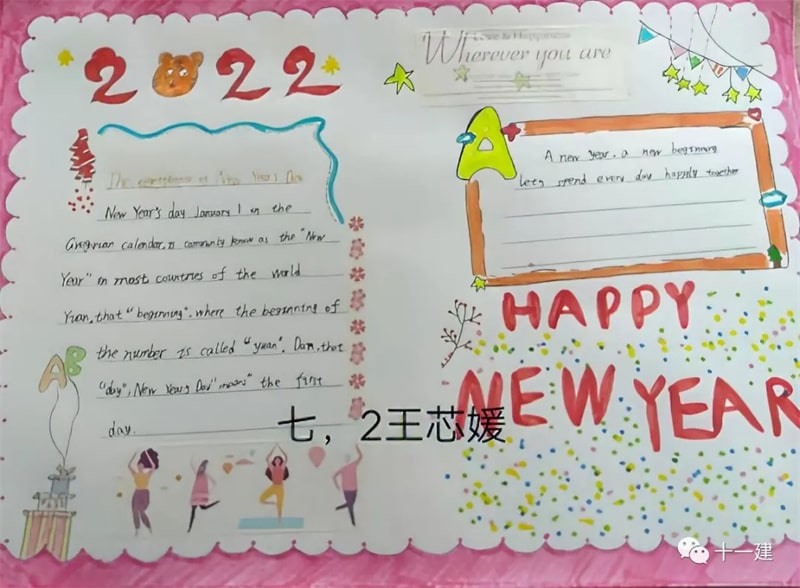 2022
Love & Happiness
Wherever you are
New Year's day January 1 in the
Gregorian calendar, is commonly know as the "New
Year" in most countries of the world
Yuan, that "beginning", where the beginning of
the number is called "yuan". Dan, that
"day", New Year's Day" means" the first
day.
AB
A
A new year, a new beginning
lets spend every day happily together
HAPPY
NEW YEAR
七，2王芯媛
十一建